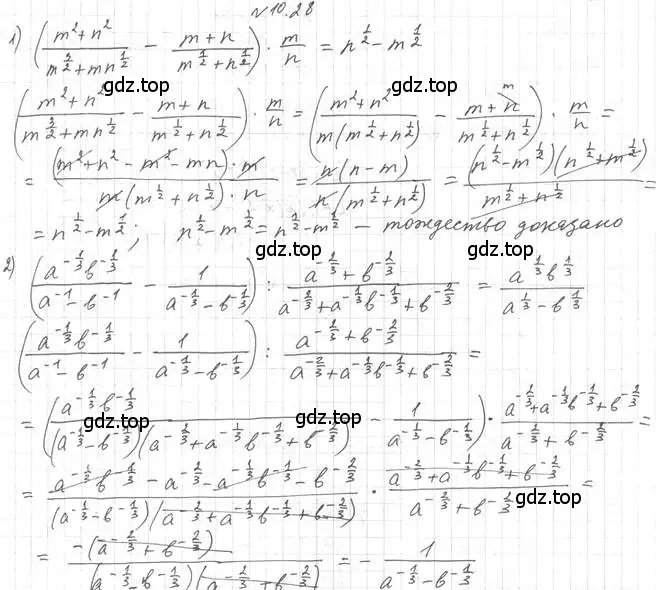 №10.28
1) (m²+n² / m^{3/2}+mn^{1/2} − m+n / m^{1/2}+n^{1/2}) · m/n = n^{1/2}−m^{1/2}
гдz.top
(m²+n² / m^{3/2}+mn^{1/2} − m+n / m^{1/2}+n^{1/2}) · m/n = (m²+n² / m(m^{1/2}+n^{1/2}) − m+n / m^{1/2}+n^{1/2}) · m/n =
= (m²+n²−m²−mn)·m / m(m^{1/2}+n^{1/2})·n = n(n−m) / n(m^{1/2}+n^{1/2}) = (n^{1/2}−m^{1/2})(n^{1/2}+m^{1/2}) / m^{1/2}+n^{1/2} =
= n^{1/2}−m^{1/2}; n^{1/2}−m^{1/2} = n^{1/2}−m^{1/2} − тождество доказано
2) (a^{-1/3}b^{-1/3} / a^{-1}−b^{-1} − 1 / a^{-1/3}−b^{-1/3}) : a^{-2/3}+b^{-2/3} / a^{-2/3}+a^{-1/3}b^{-1/3}+b^{-2/3} = a^{1/3}b^{1/3} / a^{1/3}−b^{1/3}
(a^{-1/3}b^{-1/3} / a^{-1}−b^{-1} − 1 / a^{-1/3}−b^{-1/3}) : a^{-2/3}+b^{-2/3} / a^{-2/3}+a^{-1/3}b^{-1/3}+b^{-2/3} =
= (a^{-1/3}b^{-1/3} / (a^{-1/3}−b^{-1/3})(a^{-2/3}+a^{-1/3}b^{-1/3}+b^{-2/3}) − 1 / a^{-1/3}−b^{-1/3}) · a^{-2/3}+a^{-1/3}b^{-1/3}+b^{-2/3} / a^{-2/3}+b^{-2/3} =
= a^{-1/3}b^{-1/3}−a^{-2/3}−a^{-1/3}b^{-1/3}−b^{-2/3} / (a^{-1/3}−b^{-1/3})(a^{-2/3}+a^{-1/3}b^{-1/3}+b^{-2/3}) · a^{-2/3}+a^{-1/3}b^{-1/3}+b^{-2/3} / a^{-2/3}+b^{-2/3} =
= −(a^{-2/3}+b^{-2/3}) / (a^{-1/3}−b^{-1/3})(a^{-2/3}+b^{-2/3}) = − 1 / a^{-1/3}−b^{-1/3}